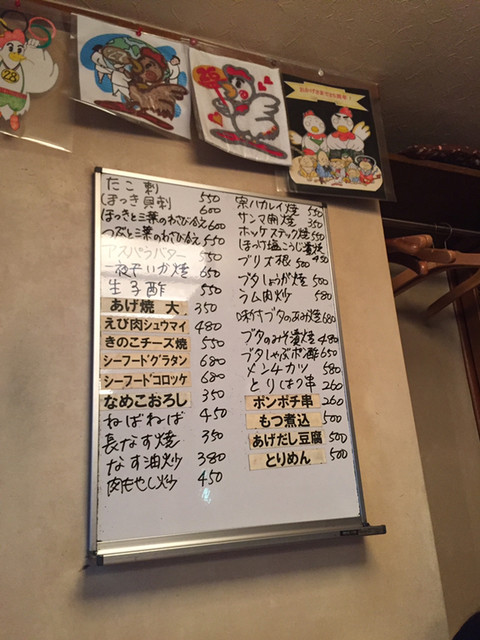 たこ刺 550
ほっき貝刺 600
ほっきと三葉のわさび冷え 600
つぶと三葉のわさび冷え 550
アスパラバター 550
一夜干いか焼 650
生子酢 550
あげ焼 大 350
えび肉シュウマイ 480
きのこチーズ焼 550
シーフードグラタン 680
シーフードコロッケ 680
なめこおろし 350
ねばねば 450
長なす焼 350
なす油炒 380
肉もやし炒 450
宗八カレイ焼 550
サンマ開焼 350
ホッケステック焼 550
ほっけ塩こうじ漬焼 450
ブリ大根 500
ブタしょうが焼 500
ラム肉炒 580
味付ブタのあみ焼 680
ブタのみそ漬焼 480
ブタしゃぶポン酢 650
メンチカツ 580
とりはつ串 260
ボンボチ串 260
もつ煮込 500
あげだし豆腐 500
とりめん 500